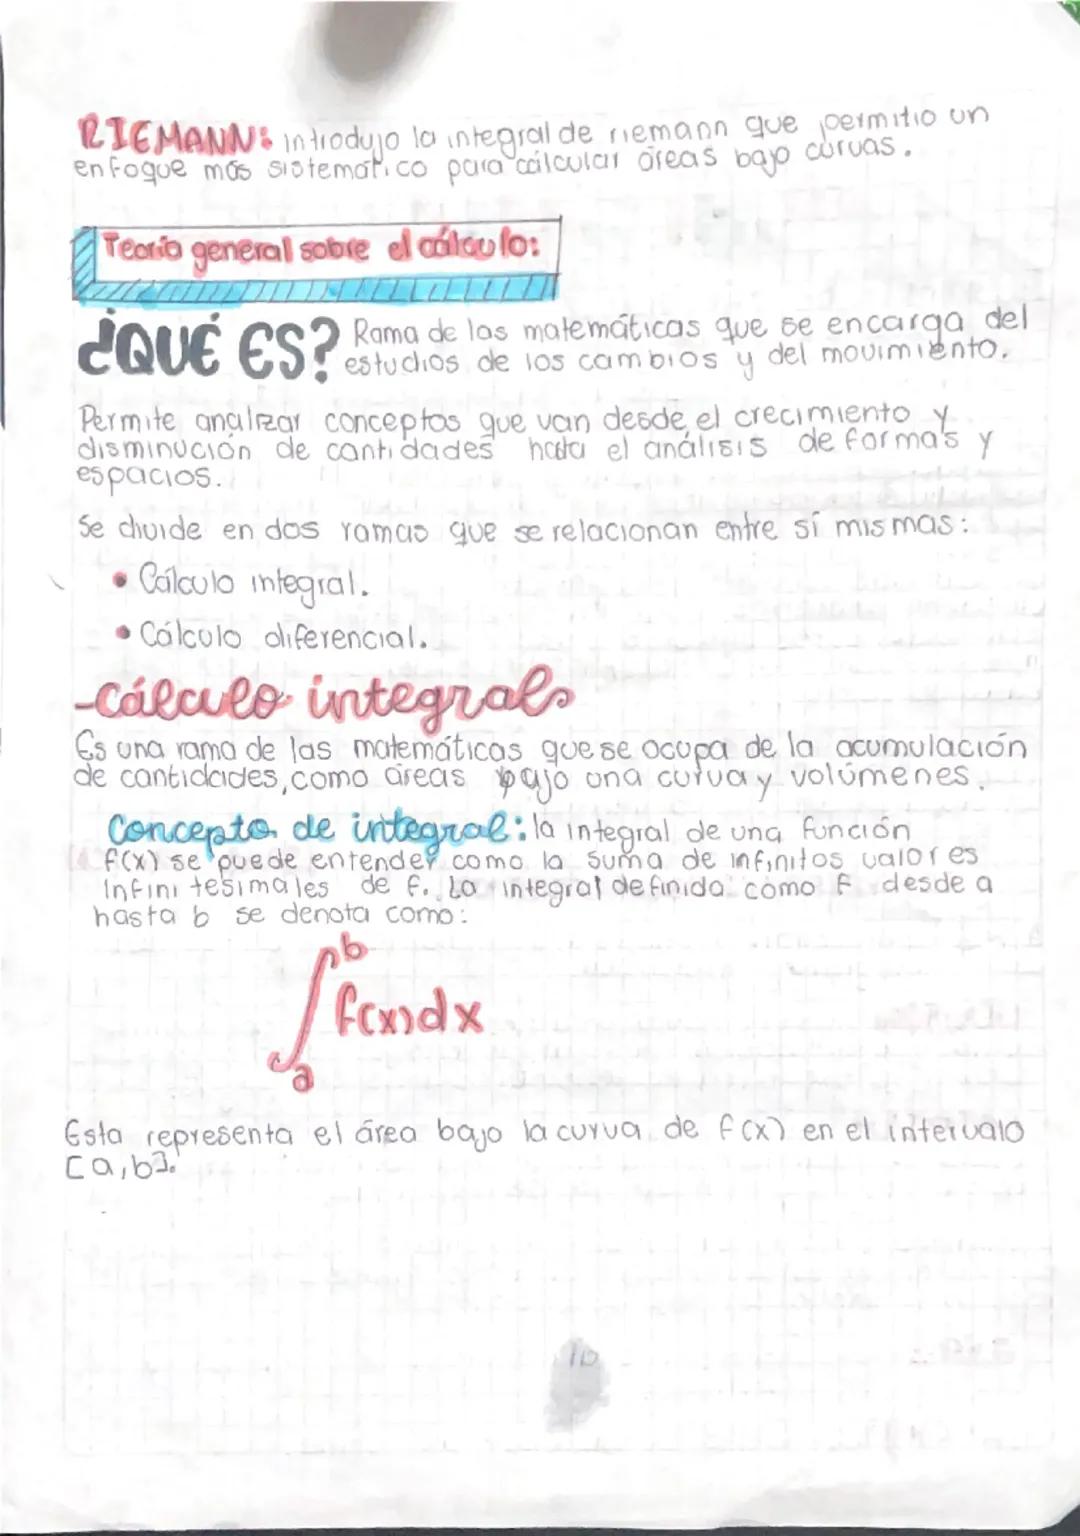 RIEMANN: introdujo la integral de riemann que permitio un
enfoque más sistemático para cálcular áreas bajo curvas.
Teoría general sobre el cálculo:
¿QUÉ ES? Rama de las matemáticas que se encarga del
estudios de los cambios y del movimiento.
Permite analizar conceptos que van desde el crecimiento y
disminución de cantidades hasta el análisis de formas y
espacios.
Se divide en dos ramas que se relacionan entre sí mismas:
• Cálculo integral.
• Cálculo diferencial.
-Cálculo integral.
Es una rama de las matemáticas que se ocupa de la acumulación
de cantidades, como áreas bajo una curva y volúmenes.
Concepto de integral: la integral de una función
f(x) se puede entender como la suma de infinitos valores
infinitesimales de f. La integral definida como f desde a
hasta b se denota como:
∫ₐᵇ f(x)dx
Esta representa el área bajo la curva de f(x) en el intervalo
[a,b].